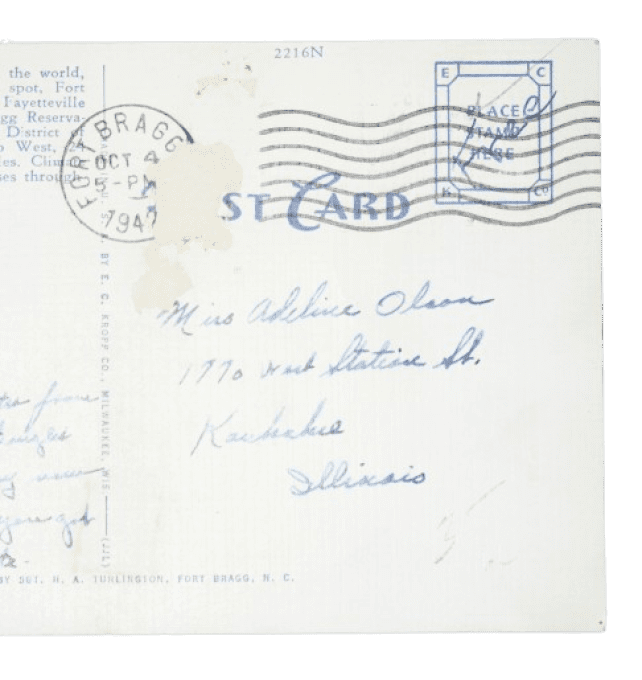 2216N
the world,
spot, Fort
Fayetteville
gg Reserva-
District of
o West, 2
les. Clima
ses through
E C
PLACE
STAMP
HERE
K Co
FORT BRAGG
OCT 4
5-PM
1947
ST CARD
BY E. C. KROPP CO., MILWAUKEE, WIS (JJL)
Miss Adeline Olson
1770 West Station St.
Kankakee
Illinois
from
now
you got
BY SGT. H. A. TURLINGTON, FORT BRAGG, N. C.